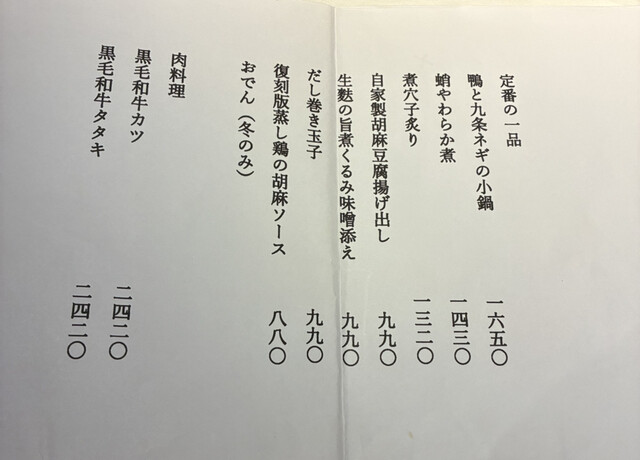 定番の一品
鴨と九条ネギの小鍋 一六五〇
蛸やわらか煮 一四三〇
煮穴子炙り 一三二〇
自家製胡麻豆腐揚げ出し 九九〇
生麩の旨煮くるみ味噌添え 九九〇
だし巻き玉子 九九〇
復刻版蒸し鶏の胡麻ソース 八八〇
おでん（冬のみ）
肉料理
黒毛和牛カツ 二四二〇
黒毛和牛タタキ 二四二〇